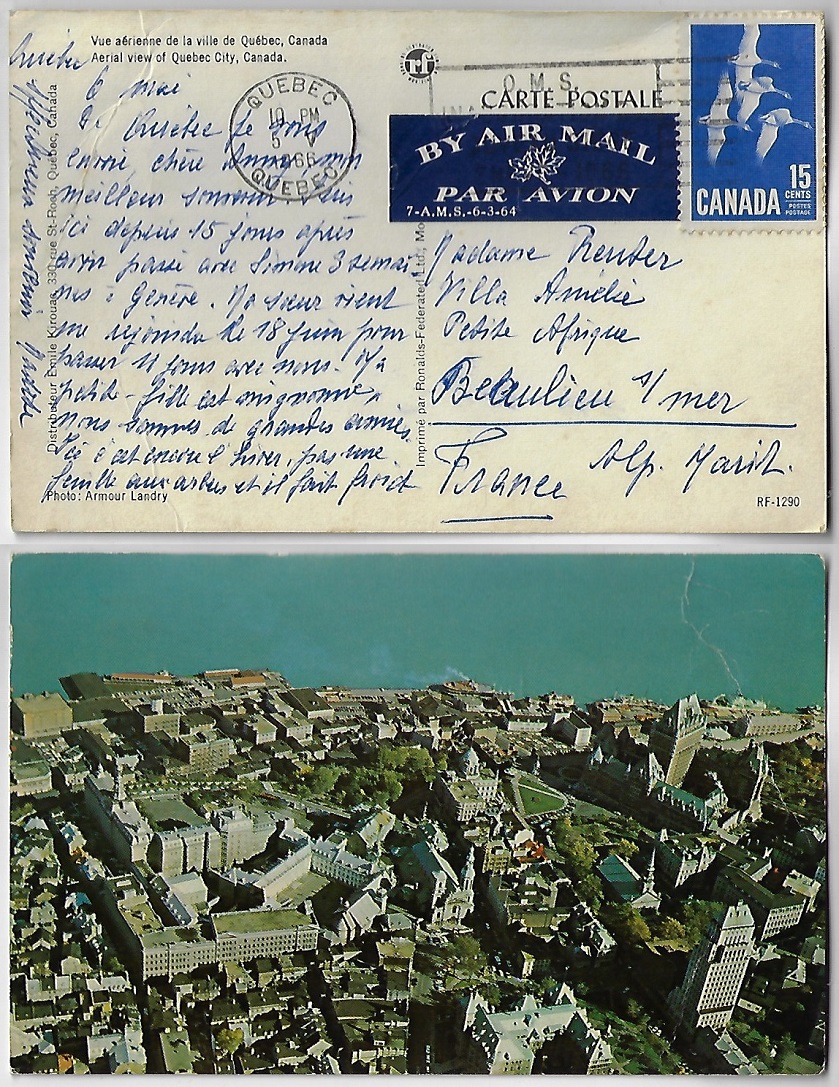 Vue aérienne de la ville de Québec, Canada
Aerial view of Quebec City, Canada.
Québec
6 mai
De Québec je vous
envoie, chère Anny, mon
meilleur souvenir. Suis
ici depuis 15 jours après
avoir passé avec Simone 3 semai
nes à Genève. Ma sœur vient
me rejoindre le 18 juin pour
passer 11 jours avec nous. Ma
petite-fille est mignonne,
nous sommes de grandes amies.
Ici c'est encore l'hiver, pas une
feuille aux arbres et il fait froid
Photo: Armour Landry
Distributeur Emile Kirouac, 330 rue St-Roch, Québec, Canada
Imprimé par Ronalds-Federated Ltd., Mo
rf
QUEBEC
10 PM
5 V
1966
QUEBEC
O.M.S.
CARTE POSTALE
BY AIR MAIL
PAR AVION
7-A.M.S.-6-3-64
15
CENTS
CANADA
POSTES
POSTAGE
Madame Reuter
Villa Amélie
Petite Afrique
Beaulieu s/mer
Alp. Marit.
France
RF-1290